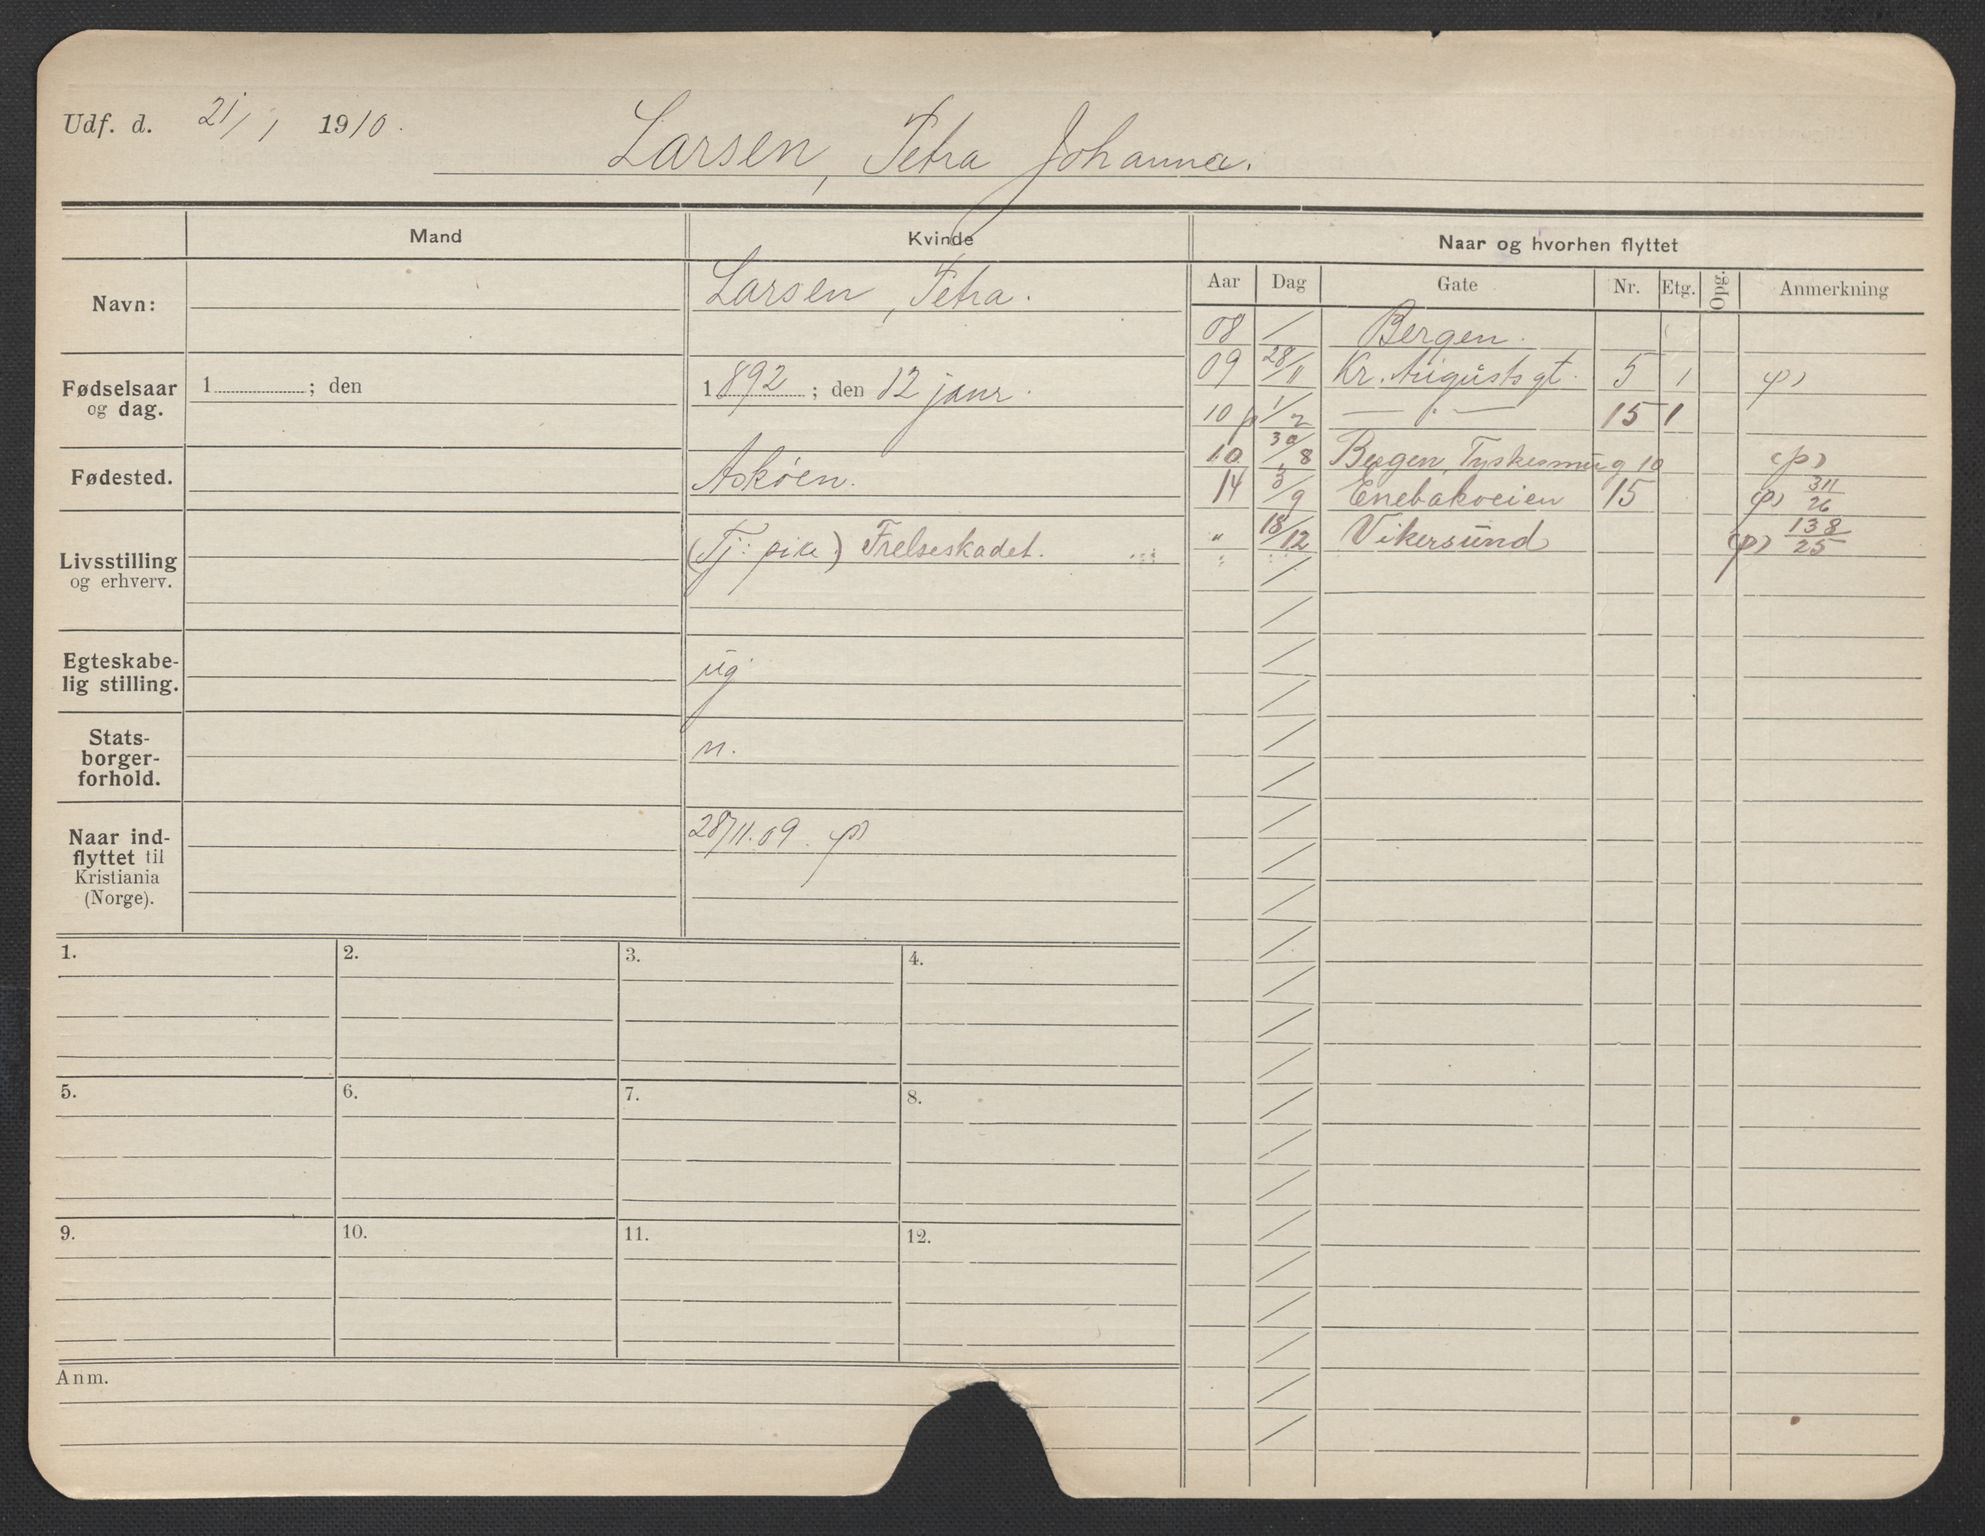 Udf. d. 21/1 1910.
Larsen, Petra Johanna.
Mand
Kvinde
Naar og hvorhen flyttet
Aar Dag Gate Nr. Etg. Opg. Anmerkning
Navn:
Larsen, Petra.
Fødselsaar
og dag.
1 ; den
1892 ; den 12 janr.
Fødested.
Askøen.
Livsstilling
og erhverv.
(Tj: pike) Frelseskadet.
Egteskabe-
lig stilling.
ug
Stats-
borger-
forhold.
n.
Naar ind-
flyttet til
Kristiania
(Norge).
28/11.09. (p)
08 / Bergen.
09 28/11 Kr. Augusts gt. 5 1 (p)
10 p 1/2 — " — 15 1
10 30/8 Bergen, Tyskesmug 10 (p)
14 3/9 Enebakveien 15 (p) 311/26
" 18/12 Vikersund (p) 138/25
1. 2. 3. 4.
5. 6. 7. 8.
9. 10. 11. 12.
Anm.